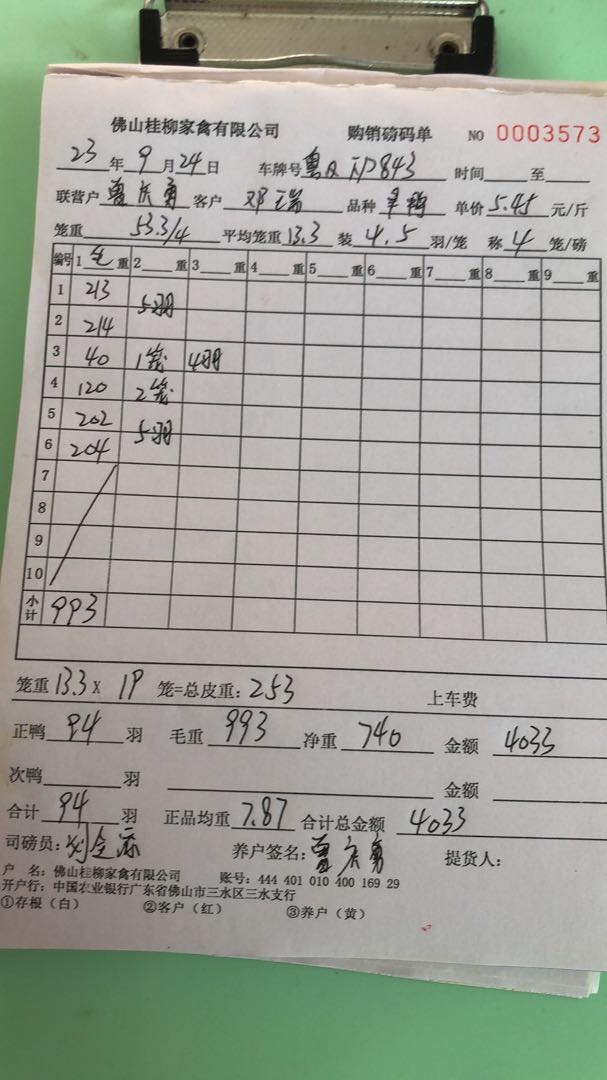 佛山桂柳家禽有限公司 购销磅码单 NO 0003573
23年9月24日 车牌号 粤 843 时间 至
联营户 客户 邓瑞 品种 单价 5.45 元/斤
笼重 53.3/4 平均笼重 13.3 装 4.5 羽/笼 称 4 笼/磅
编号 1 毛 重 2 重 3 重 4 重 5 重 6 重 7 重 8 重 9 重
1 213
5羽
2 214
3 40 1笼 4羽
4 120 2笼
5 202
5羽
6 204
7
8
9
10
小计 993
笼重 13.3 X 19 笼=总皮重: 253 上车费
正鸭 94 羽 毛重 993 净重 740 金额 4033
次鸭 羽 金额
合计 94 羽 正品均重 7.87 合计总金额 4033
司磅员: 养户签名: 提货人:
户 名: 佛山桂柳家禽有限公司 账号: 444 401 010 400 169 29
开户行: 中国农业银行广东省佛山市三水区三水支行
①存根（白） ②客户（红） ③养户（黄）